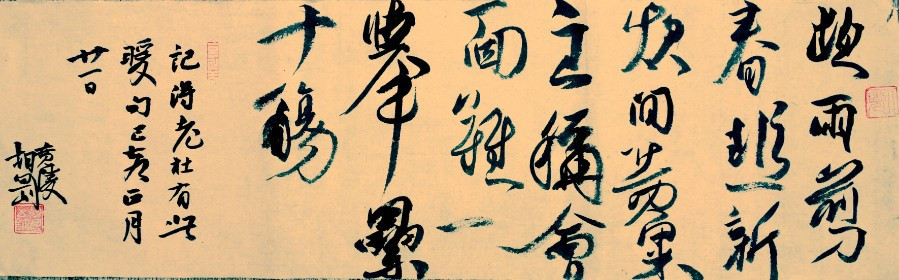 夜雨剪
春韭新
炊間黃粱
主稱會
面難一
舉累
十觴
記得老杜有此
暖句己亥正月
廿一日
黄陵